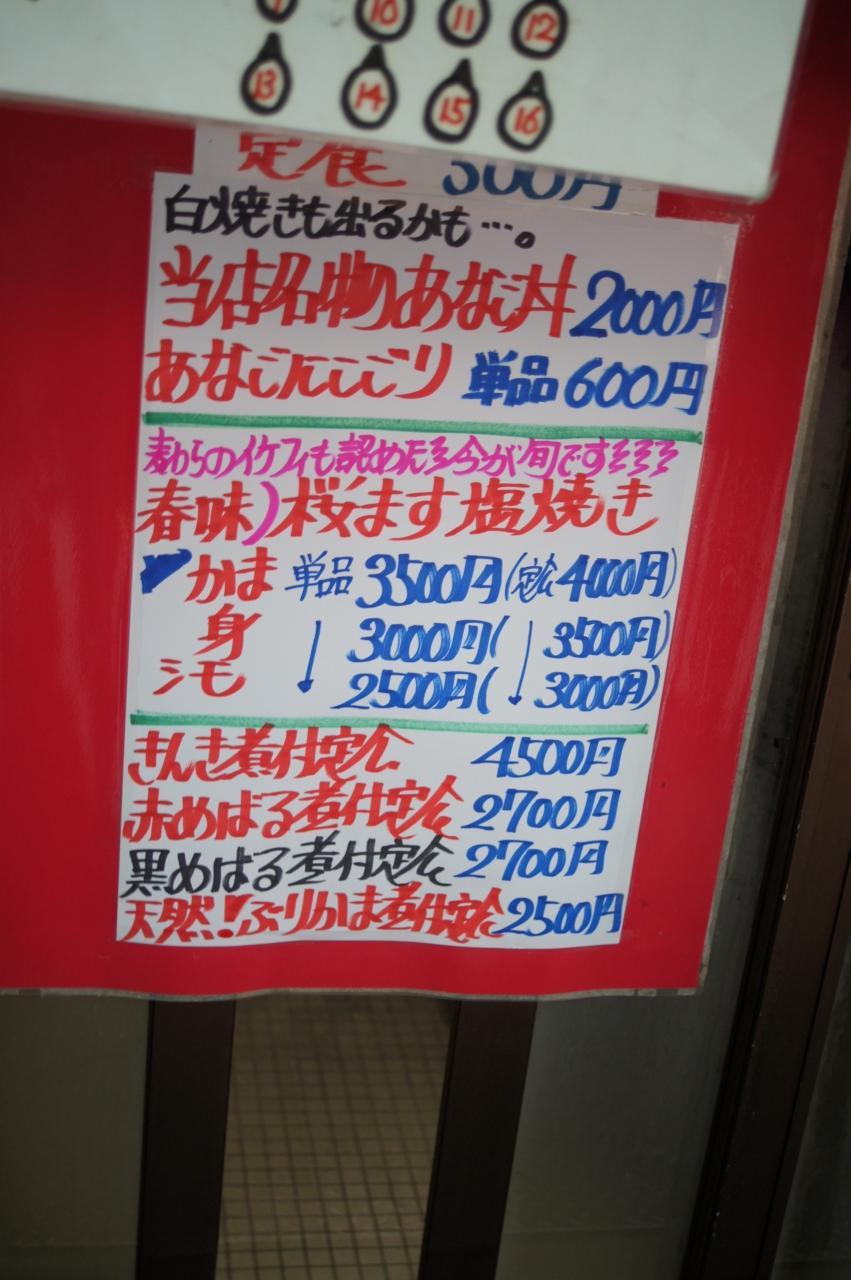 9 10 11 12
13 14 15 16
定食 300円
白焼きも出るかも…。
当店名物あなご丼 2000円
あなごにこごり 単品 600円
麦わらのイケフィも認めた 今が旬です
春味)桜ます塩焼き
かま 単品 3500円(定食 4000円)
身 ↓ 3000円(↓ 3500円)
シモ 2500円( 3000円)
きんき煮付定食 4500円
赤めばる煮付定食 2700円
黒めばる煮付定食 2700円
天然!ぶりかま煮付定食 2500円